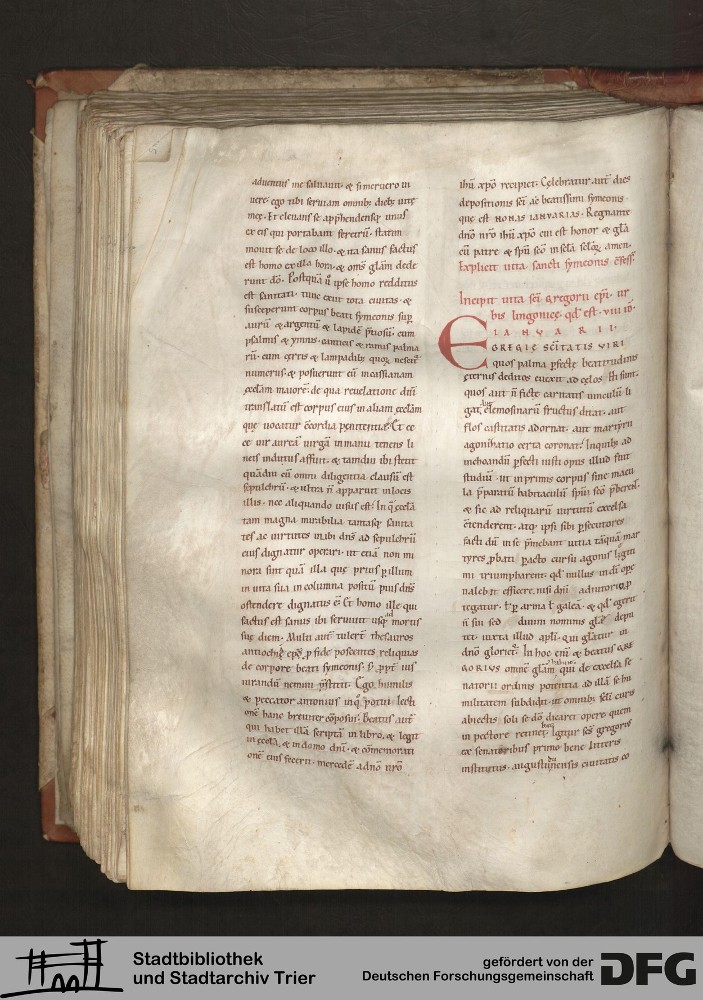 aduentus me saluauit· & si meruero ui
uere ego tibi seruiam omnib; dieb; uitę
meę· Et eleuans se app̃hendensq; unus
ex eis qui portabant feretrū· statim
mouit se de loco illo· & ita sanus factus
est homo ex illa hora· & om̃s glām dede
runt dō· Postquā ū ipse homo redditus
est sanitati· tunc exiit tota ciuitas· &
susceperunt corpus beati symeonis sup̱
aurū & argentū & lapidē p̃tiosū· cum
psalmis & ymnis· canticis & ramis palma
rū· cum cereis & lampadib; quoȝ nescit̃
numerus· & posuerunt eū in cassianam
ęccłam maiorē· de qua reuelatione diui
translatū est corpus eius in aliam ęccłam
quę uocatur c̄cordia penitentiae· Et ec
ce uir aureā uirgā in manu tenens li
neis indutus affuit· & tamdiu ibi stetit
quādiu eū omni diligentia clausū est
sepulchrū· & ultra ñ apparuit in locis
illis· nec aliquando uisus est· In q̇ ęccłā
tam magna mirabilia tantasq; sanita
tes ac uirtutes in ibi dñs ad sepulchrū
eius dignatur operari· ut etiā non mi
nora sint quā illa quę prius p̱ illum
in uita sua in columna positū pius dñs
ostendere dignatus ē· Et homo ille qui
factus est sanus ibi seruiuit usq; ad mortis
suę diem· Multi aut̃ tulert̃ thesauros
antiochię ep̄o p̱ fide poscentes reliquias
de corpore beati symeonis· s; ppt̃ ius
iurandū nemini p̃stitit· Ego humilis
& peccator antonius inq̇ potui lecti
onē hanc breuiter c̄posui· Beatus aut̃
qui habet illā scriptā in libro, & legit
in ęccła, & in domo dñi· & cōmemorati
onē eius fecerit· mercedē a dñō nr̄o
ihū xp̄o recipiet· Celebratur aut̃ dies
depositionis sc̄i ac beatissimi symeonis
que est NONAS IANVARIAS· Regnante
dñō nr̄o ihū xp̄o cui est honor & glā
cū patre & sp̄u sc̄o in sc̄la sc̄loȝ amen·
Explicit uita sancti symeonis c̄fess̄·
Incipit uita sc̄i gregorii ep̄i· ur
bis lingonicę· qd̄ est· VIII id̄·
IANVARII·
EGREGIE SC̄ITATIS VIRI
quos palma p̱fectę beatitudinis
ęternis deditos euexit ad cęlos· Hi sunt·
quos aut ñ fictę caritatis uinculū li
gat̃ aut elemosinarū fructus ditat· aut
flos castitatis adornat· aut martyrii
agonizatio certa coronat· In quib; ad
inchoandū p̱fecti iusti opus illud fuit
studiū· ut in primis corpus sine macu
la p̃paratū habitaculū sp̄ui sc̄o p̃berent̃·
& sic ad reliquarū uirtutū excelsa
c̄tenderent· atq; ipsi sibi p̱secutores
facti dū in se p̱imebant uitia tāquā mar
tyres p̱bati p̱acto cursu agonis legiti
mi triumpharent· qd̄ nullus in dī ope
ualebit efficere, nisi dñi adiutorio p̱
tegatur· & p̱ arma & galeā· & qd̄ egerit
ñ sui sed diuini nominis glę depu
tet· iuxta illud apl̄i· qui gl̄atur in
dñō glorietur· In hoc eni & beatus GRE
GORIVS omnē glām qui de excelsa se
natorii ordinis potentia ad illā se hu
militatem subdidit· ut omnib; sc̄li curis
abiectis soli se dō dicaret opere quem
in pectore retinebat· Igitur sc̄s gregorius
ex senatoribus primo· bene litteris
institutus· augustidunensis ciuitatis co
Stadtbibliothek
und Stadtarchiv Trier
gefördert von der
Deutschen Forschungsgemeinschaft
DFG